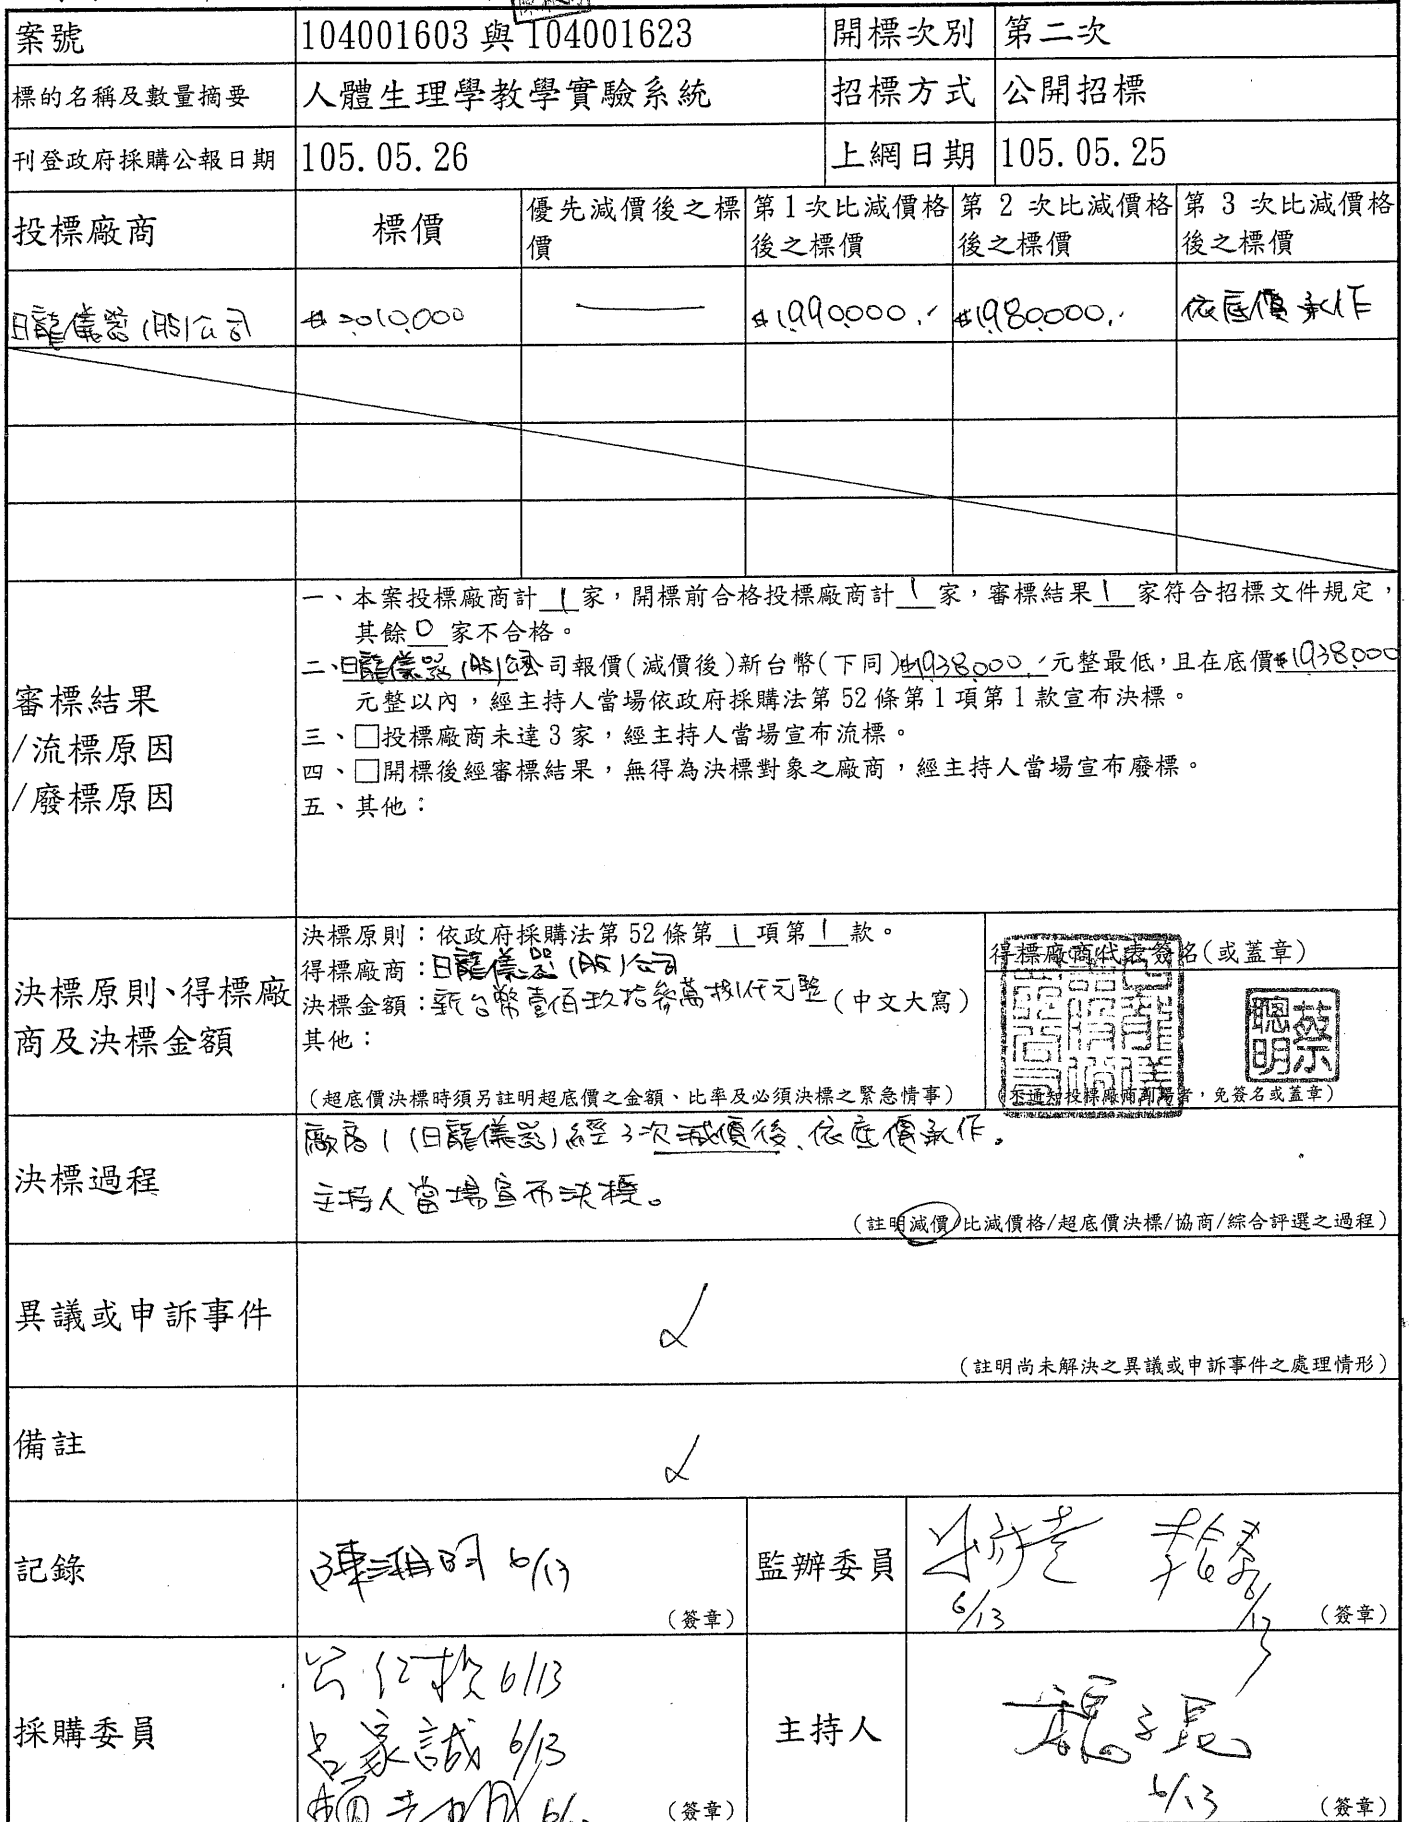 案號 104001603 與 104001623 開標次別 第二次
標的名稱及數量摘要 人體生理學教學實驗系統 招標方式 公開招標
刊登政府採購公報日期 105.05.26 上網日期 105.05.25
投標廠商 標價 優先減價後之標價 第1次比減價格後之標價 第 2 次比減價格後之標價 第 3 次比減價格後之標價
日龍儀器(股)公司 $2,010,000 $1,990,000.- $1,980,000.- 依底價承作
審標結果
/流標原因
/廢標原因
一、本案投標廠商計 1 家,開標前合格投標廠商計 1 家,審標結果 1 家符合招標文件規定,
其餘 0 家不合格。
二、日龍儀器(股)公司報價(減價後)新台幣(下同)$1,938,000.-元整最低,且在底價$1,938,000
元整以內,經主持人當場依政府採購法第52條第1項第1款宣布決標。
三、□投標廠商未達3家,經主持人當場宣布流標。
四、□開標後經審標結果,無得為決標對象之廠商,經主持人當場宣布廢標。
五、其他:
決標原則、得標廠
商及決標金額
決標原則:依政府採購法第52條第 1 項第 1 款。
得標廠商:日龍儀器(股)公司
決標金額:新台幣壹佰玖拾參萬捌仟元整(中文大寫)
其他:
(超底價決標時須另註明超底價之金額、比率及必須決標之緊急情事)
得標廠商代表簽名(或蓋章)
蔡聰明
(不通知投標廠商到場者,免簽名或蓋章)
決標過程
廠商1(日龍儀器)經3次減價後、依底價承作。
主持人當場宣布決標。
(註明減價/比減價格/超底價決標/協商/綜合評選之過程)
異議或申訴事件
(註明尚未解決之異議或申訴事件之處理情形)
備註
記錄 6/13 (簽章)
監辦委員 6/13 6/13 (簽章)
採購委員 6/13
呂家誠 6/13
(簽章)
主持人
6/13 (簽章)